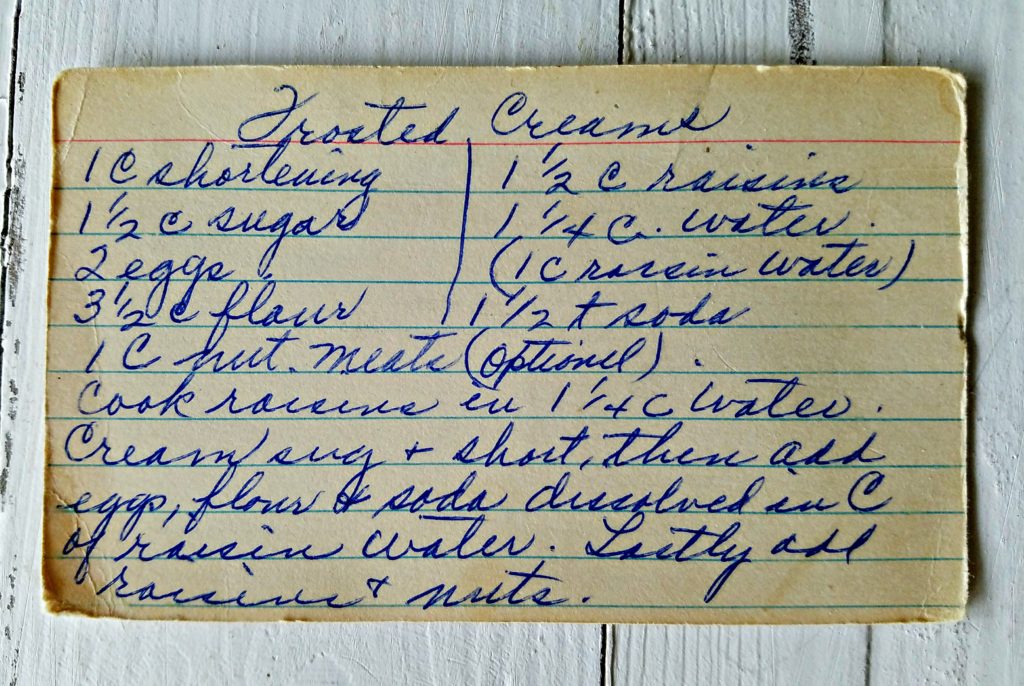 Frosted Creams
1 C shortening
1 1/2 c sugar
2 eggs
3 1/2 c flour
1 1/2 c raisins
1 1/4 c. water.
(1 c raisin water)
1 1/2 t soda
1 C nut. meats (optionel).
Cook raisins in 1 1/4 c water.
Cream sug + short, then add
eggs, flour & soda dissolved in C
of raisin water. Lastly add
raisins + nuts.